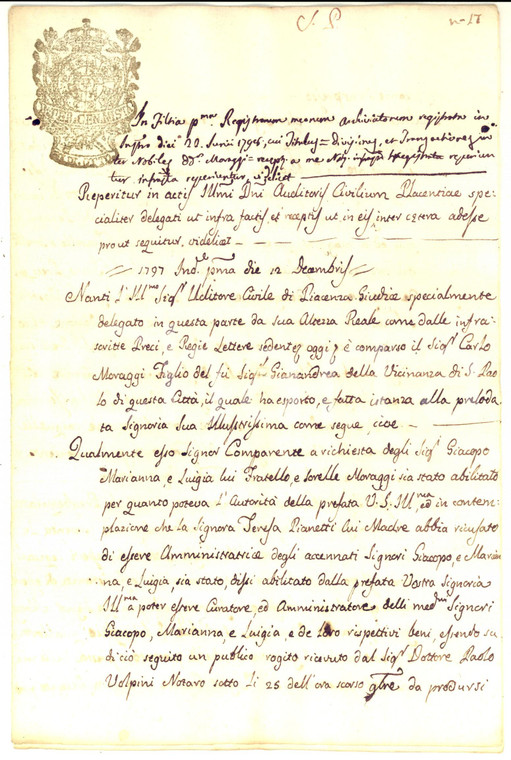 S. P.
n. II
In Filtia pma Registrorum meorum archiviatorum registrata in
Insto diei 20 Junii 1798, cui Titulus = divisiones, et Transactiones in
ter Nobiles DD. Moraggi = recepto a me Noj. infrascripto registrata reperiun
tur infrascripta reperientur, videlicet
Reperitur in actis Illmi Dni Auditoris Civilium Placentiae spe-
cialiter delegati ut infra factis, et receptis ut in eis inter cetera adesse
prout sequitur, videlicet
1797 Inde pma die 12 Decembris
Nanti l'Illmo Sigr Uditore Civile di Piacenza Giudice specialmente
delegato in questa parte da Sua Altezza Reale come dalle infra-
scritte Preci, e Regie Lettere sedente oggi è comparso il Sigr Carlo
Moraggi Figlio del fu Sigr Gianandrea della Vicinanza di S. Pao
lo di questa Città, il quale ha esporto, e fatta istanza alla preloda
ta Signoria Sua Illustrissima come segue, cioè
Qualmente esso Signor Comparente a richiesta degli Sigri Giacopo
Marianna, e Luigia lui Fratello, e Sorelle Moraggi sia stato abilitato
per quanto poteva l'Autorità della prefata V. S. Illma, ed in contem-
plazione che la Signora Teresa Pianetti lui Madre abbia ricusato
di essere Amministratrice degli accennati Signori Giacopo, e Marian
na, e Luigia, sia stato, dissi abilitato dalla prefata Vostra Signoria
Illma a poter essere Curatore ed Amministratore delli medmi Signori
Giacopo, Marianna, e Luigia, e de loro rispettivi beni, essendo su
di ciò seguito un publico rogito ricevuto dal Sigr Dottore Paolo
Volpini Notaro sotto li 25 dell'ora scorso 9bre da prodursi